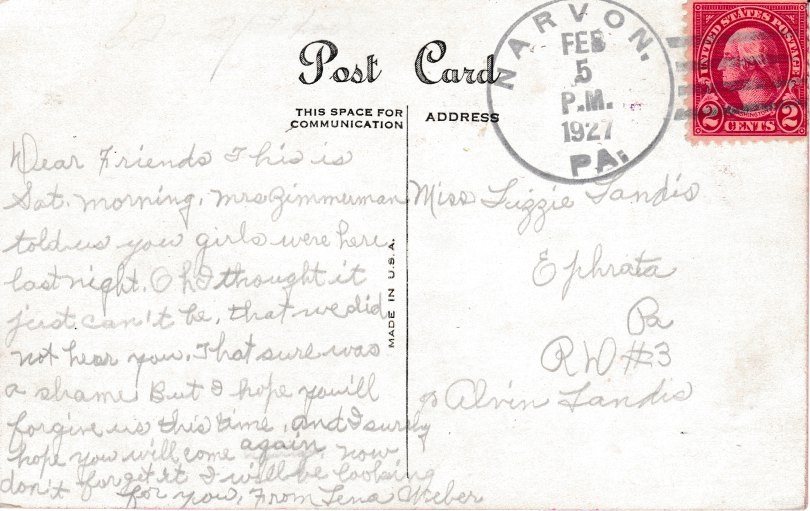 Post Card
THIS SPACE FOR
COMMUNICATION
ADDRESS
NARVON,
FEB
5
P.M.
1927
PA.
UNITED STATES POSTAGE
2 CENTS 2
Dear Friends This is
Sat. morning. Mrs Zimmerman
told us you girls were here
last night. Oh I thought it
just can't be, that we did
not hear you. That sure was
a shame But I hope you'll
forgive us this time, and I surely
hope you will come again, now
don't forget it I will be looking
for you, From Lena Weber
MADE IN U.S.A.
Miss Lizzie Landis
Ephrata
Pa
RD #3
% Alvin Landis